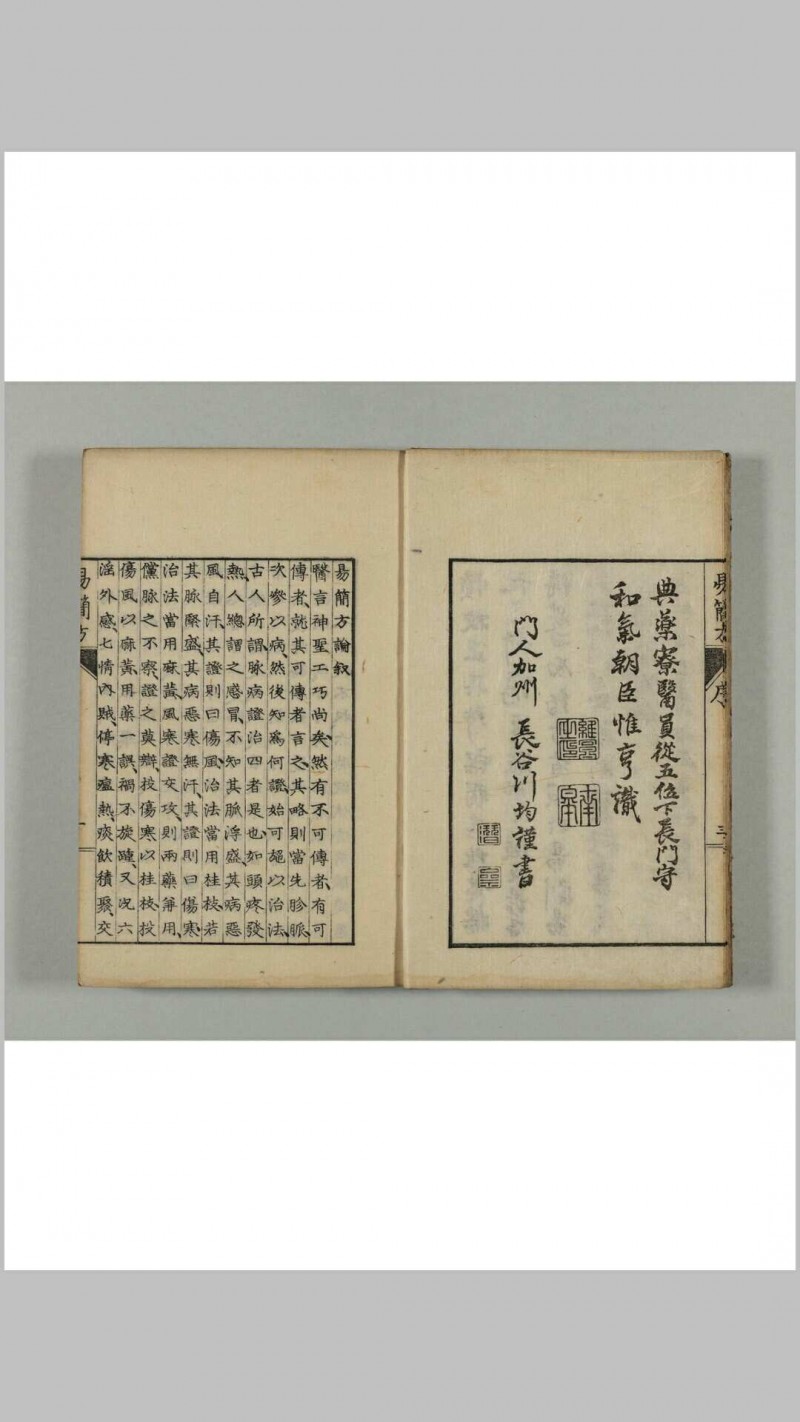 易簡方 序
三
典藥寮醫員從五位下長門守
和氣朝臣惟亨識
門人加州 長谷川均謹書
易簡方論敘
醫言神聖工巧尚矣、然有不可傳者、有可
傳者、就其可傳者言之、其略則當先診脈、
次參以病、然後知爲何證、始可繩以治法、
古人所謂脉病證治四者是也、如頭疼發
熱、人總謂之感冒、不知其脈浮盛、其病惡
風自汗、其證則曰傷風、治法當用桂枝、若
其脈緊盛、其病惡寒無汗、其證則曰傷寒、
治法當用麻黃、風寒證交攻、則兩藥筭用、
儻脉之不察、證之莫辯、投傷寒以桂枝、投
傷風以麻黃、用藥一誤、禍不旋踵、又況六
淫外感、七情內賊、停寒瘟熱、痰飲積聚、交
易簡方
一